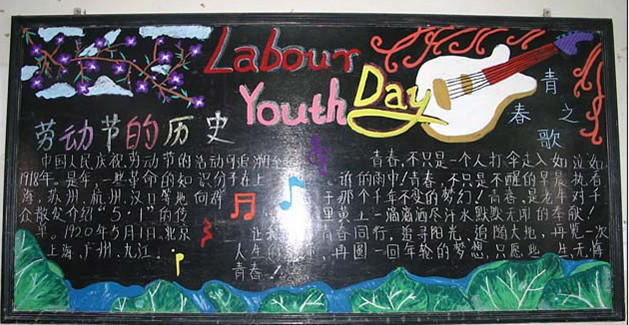 Labour
Youth Day
青春之歌
劳动节的历史
中国人民庆祝劳动节的活动可追溯至
1918年。是年,一些革命的知识分子在上
海、苏州、杭州、汉口等地向群
众散发介绍"5·1"的传
单。1920年5月1日,北京
上海、广州、九江、
青春,不只是一个人打伞走入如泣如
的雨中!青春,不只是不醒的早晨执着
于那个千年不变的梦幻!青春,是 对千
里黄土一滴滴洒尽汗水默默无闻的奉献!
让 青春同行,追寻阳光, 大地,再览一次
人生的 ,再圆一回年轮的梦想,只愿 生无悔
青春!